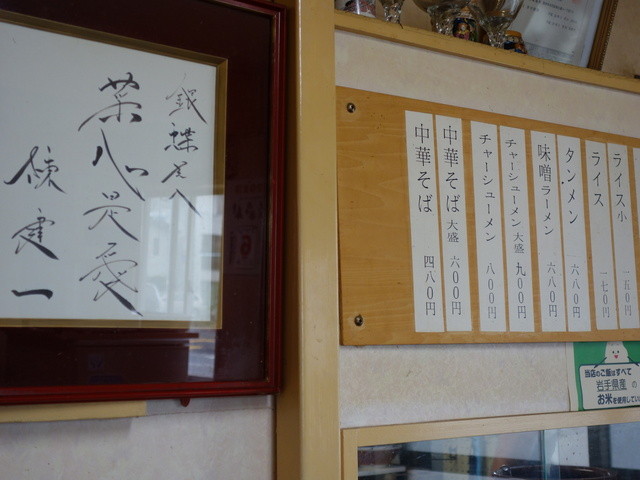 銀蝶さんへ
菜心是愛
陳建一
中華そば 四八〇円
中華そば 大盛 六〇〇円
チャーシューメン 八〇〇円
チャーシューメン 大盛 九〇〇円
味噌ラーメン 六八〇円
タンメン 六八〇円
ライス 一七〇円
ライス小 一五〇円
当店のご飯はすべて
岩手県産の
お米を使用してい